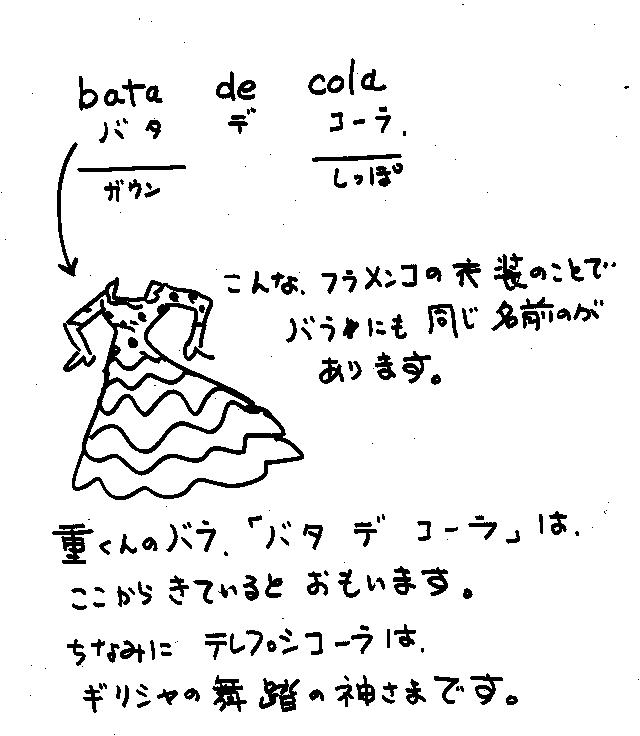 bata de cola
バタ デ コーラ.
ガウン しっぽ
こんな、フラメンコの衣装のことで
バラにも同じ名前のが
あります。
重くんのバラ、「バタ デ コーラ」は、
ここからきているとおもいます。
ちなみに テレプシコーラは、
ギリシャの舞踏の神さまです。